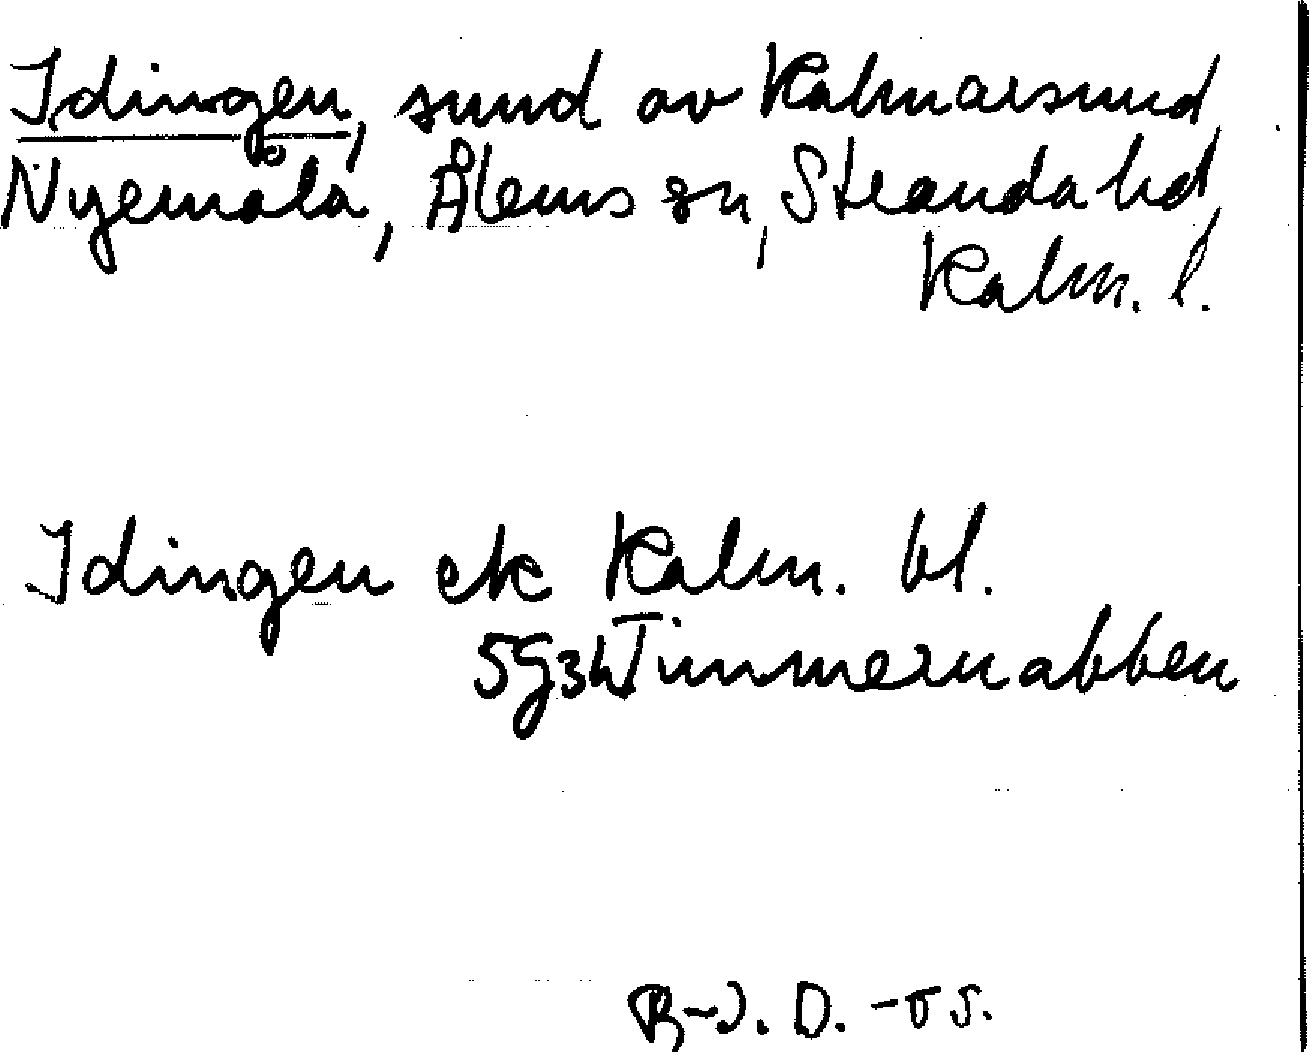 Idingen, sund av Kalmarsund,
Nyemåla, Ålems sn, Stranda hd,
Kalm. l.
Idingen ek Kalm. bl.
5G3h Timmernabben
R-J. D. -55.